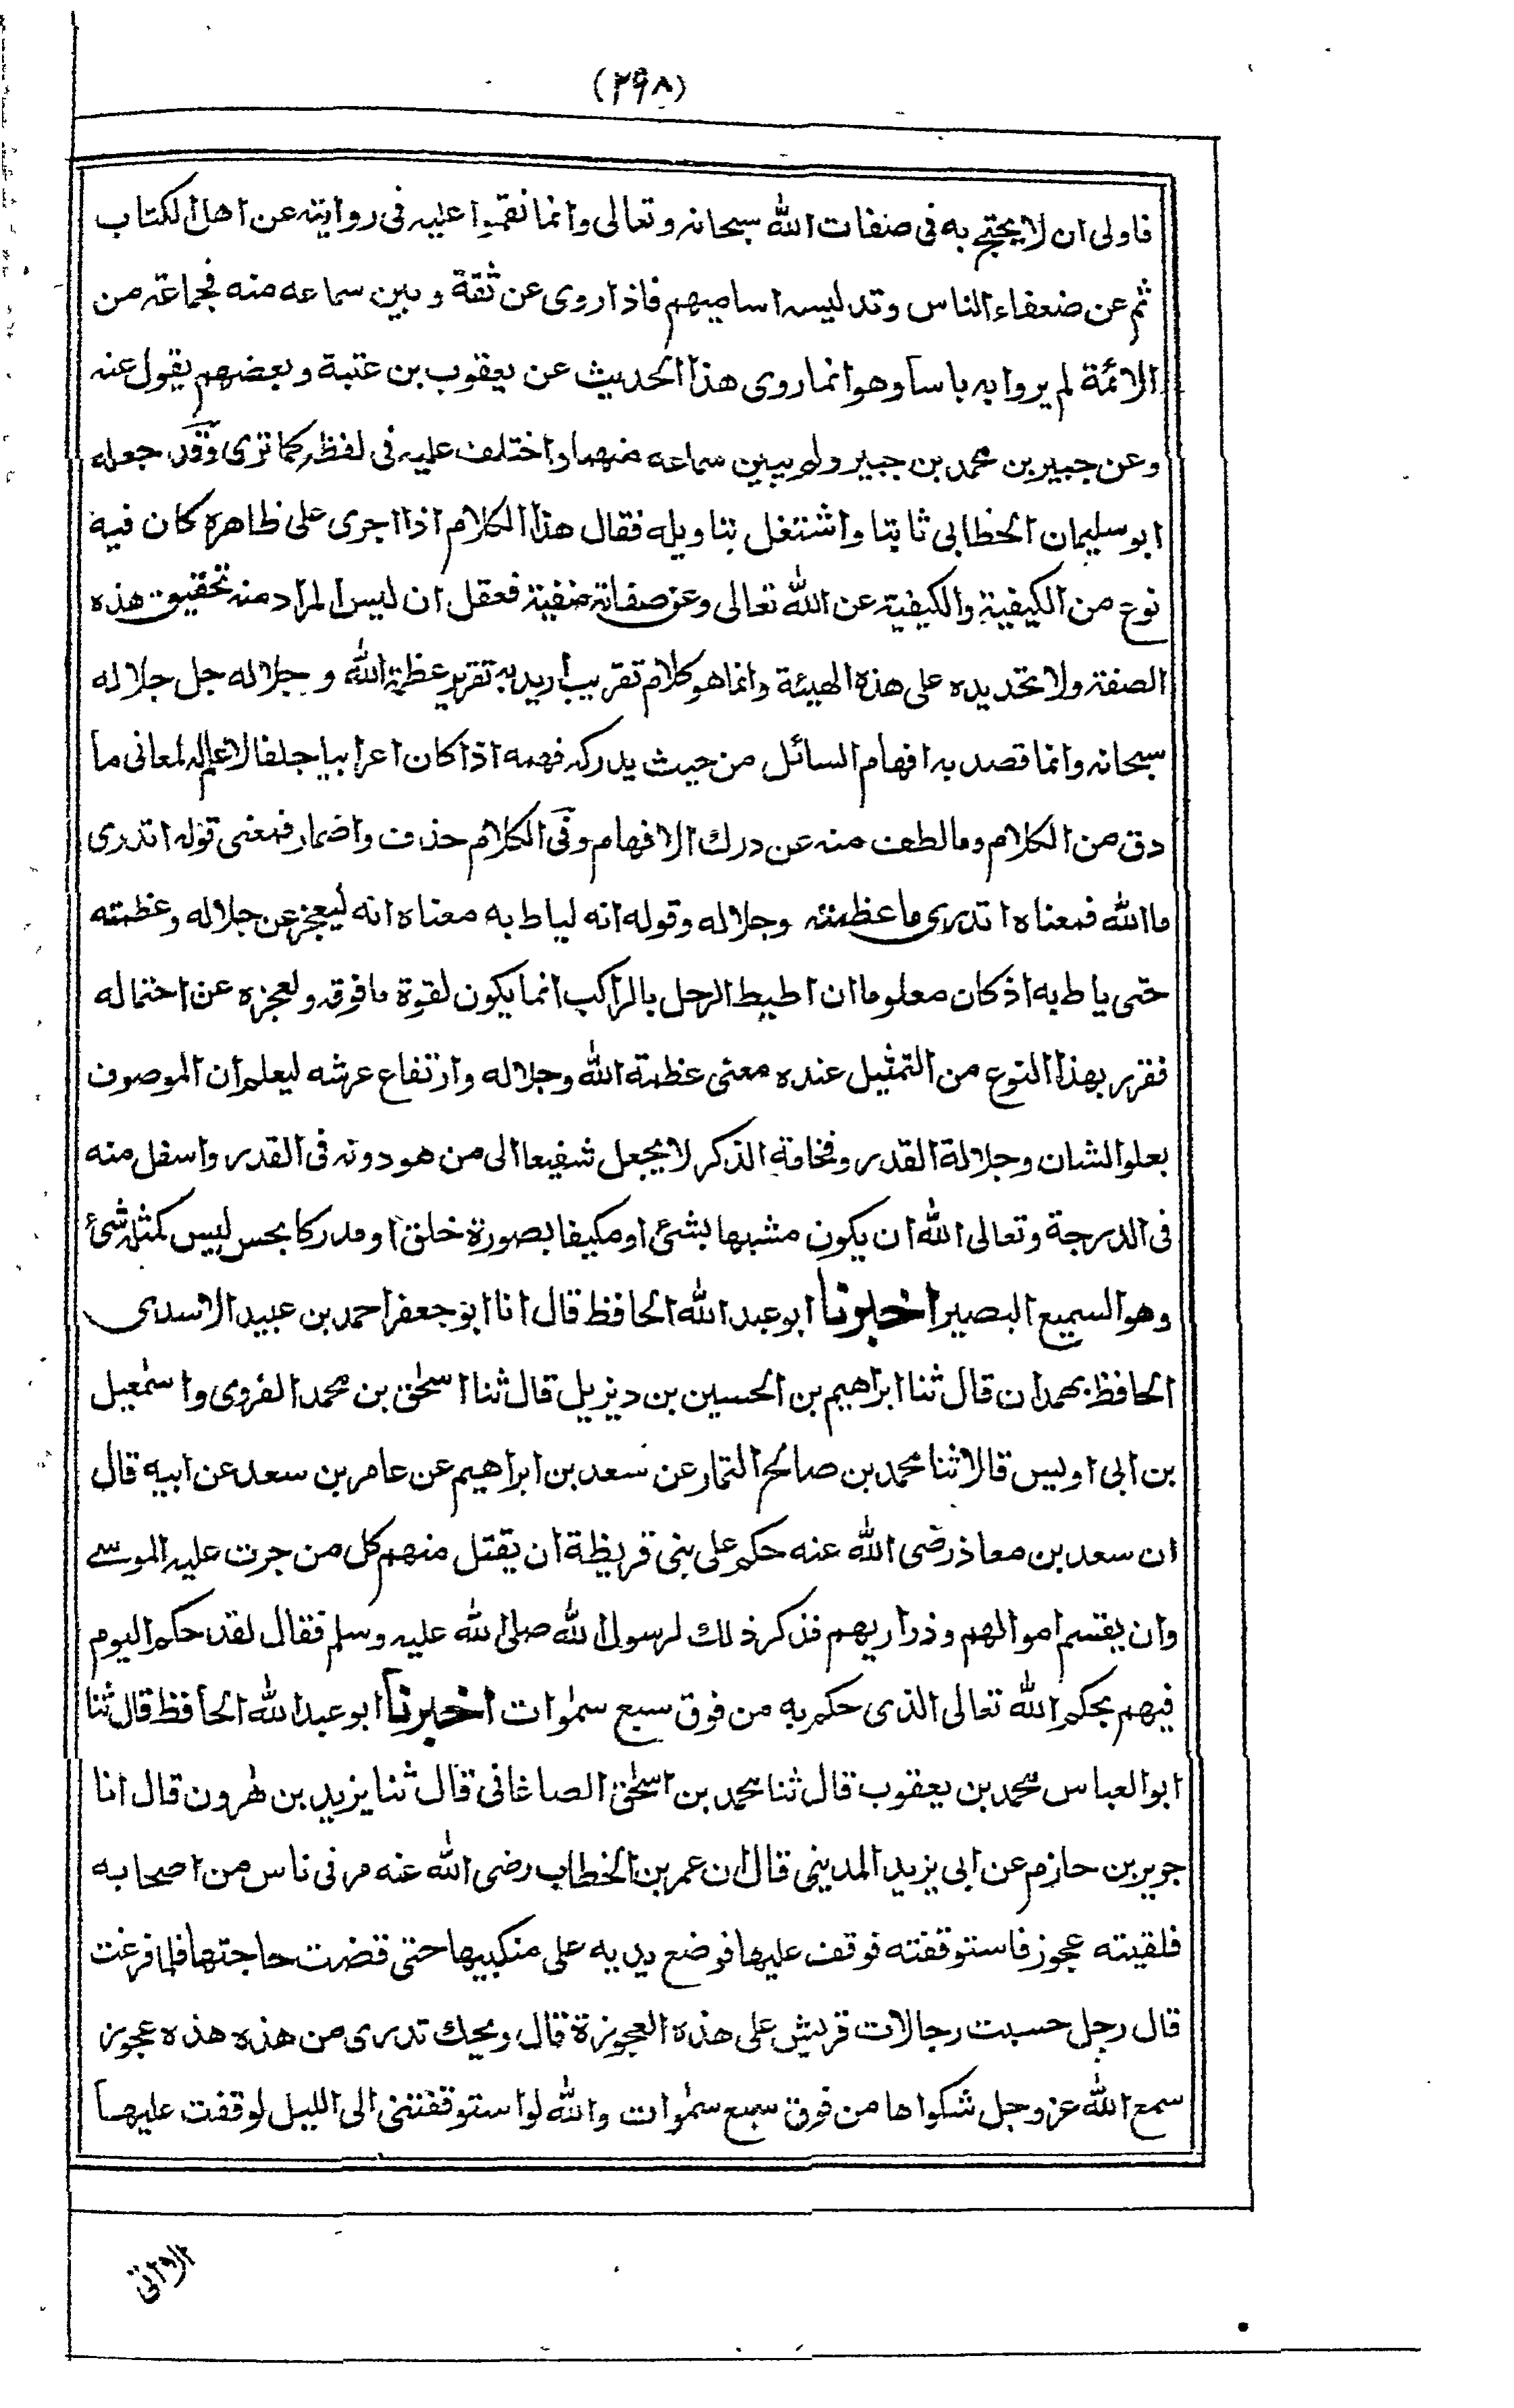 (۲۹۸)
فاولى ان لا يحتج به فى صفات الله سبحانه وتعالى وانما نقموا عليه فى روايته عن اهل الكتاب
ثم عن ضعفاء الناس وتدليسه اساميهم فاذا روى عن ثقة وبين سماعه منه فجماعة من
الائمة لم يروا به باسا وهو انما روى هذا الحديث عن يعقوب بن عتبة وبعضهم يقول عنه
وعن جبير بن محمد بن جبير ولم يبين سماعه منهما واختلف عليه فى لفظه كما ترى وقد جعله
ابو سليمان الخطابى ثابتا واشتغل بتاويله فقال هذا الكلام اذا اجرى على ظاهره كان فيه
نوع من الكيفية والكيفية عن الله تعالى وعن صفاته منفية فعقل ان ليس المراد منه تحقيق هذه
الصفة ولا تحديده على هذه الهيئة وانما هو كلام تقريب اريد به تقرير عظمة الله وجلاله جل جلاله
سبحانه وانما قصد به افهام السائل من حيث يدركه فهمه اذا كان اعرابيا جلفا لا علم له لمعانى ما
دق من الكلام وما لطف منه عن درك الافهام وفى الكلام حذف واضمار فمعنى قوله اتدرى
ما الله فمعناه اتدرى ما عظمته وجلاله وقوله انه لياط به معناه انه ليعجز عن جلاله وعظمته
حتى ياط به اذ كان معلوما ان اطيط الرحل بالراكب انما يكون لقوة ما فوقه ولعجزه عن احتماله
فقرر بهذا النوع من التمثيل عنده معنى عظمة الله وجلاله وارتفاع عرشه ليعلم ان الموصوف
بعلو الشان وجلالة القدر وفخامة الذكر لا يجعل شفيعا الى من هو دونه فى القدر واسفل منه
فى الدرجة وتعالى الله ان يكون مشبها بشئ او مكيفا بصورة خلق او مدركا بحس ليس كمثله شئ
وهو السميع البصير اخبرنا ابو عبد الله الحافظ قال انا ابو جعفر احمد بن عبيد الاسدى
الحافظ بهمدان قال ثنا ابراهيم بن الحسين بن ديزيل قال ثنا اسحٰق بن محمد الفروى واسمٰعيل
بن ابى اويس قالا ثنا محمد بن صالح التمار عن سعد بن ابراهيم عن عامر بن سعد عن ابيه قال
ان سعد بن معاذ رضى الله عنه حكم على بنى قريظة ان يقتل منهم كل من جرت عليه الموسے
وان يقسم اموالهم وذراريهم فذكر ذلك لرسول الله صلى الله عليه وسلم فقال لقد حكم اليوم
فيهم بحكم الله تعالى الذى حكم به من فوق سبع سمٰوات اخبرنا ابو عبد الله الحافظ قال ثنا
ابو العباس محمد بن يعقوب قال ثنا محمد بن اسحٰق الصاغانى قال ثنا يزيد بن هٰرون قال انا
جرير بن حازم عن ابى يزيد المدينى قال ان عمر بن الخطاب رضى الله عنه مر فى ناس من اصحابه
فلقيته عجوز فاستوقفته فوقف عليها فوضع يديه على منكبيها حتى قضت حاجتها فلما فرغت
قال رجل حسبت رجالات قريش على هذه العجوزة قال ويحك تدرى من هذه هذه عجوز
سمع الله عز وجل شكواها من فوق سبع سمٰوات والله لو استوقفتنى الى الليل لوقفت عليها